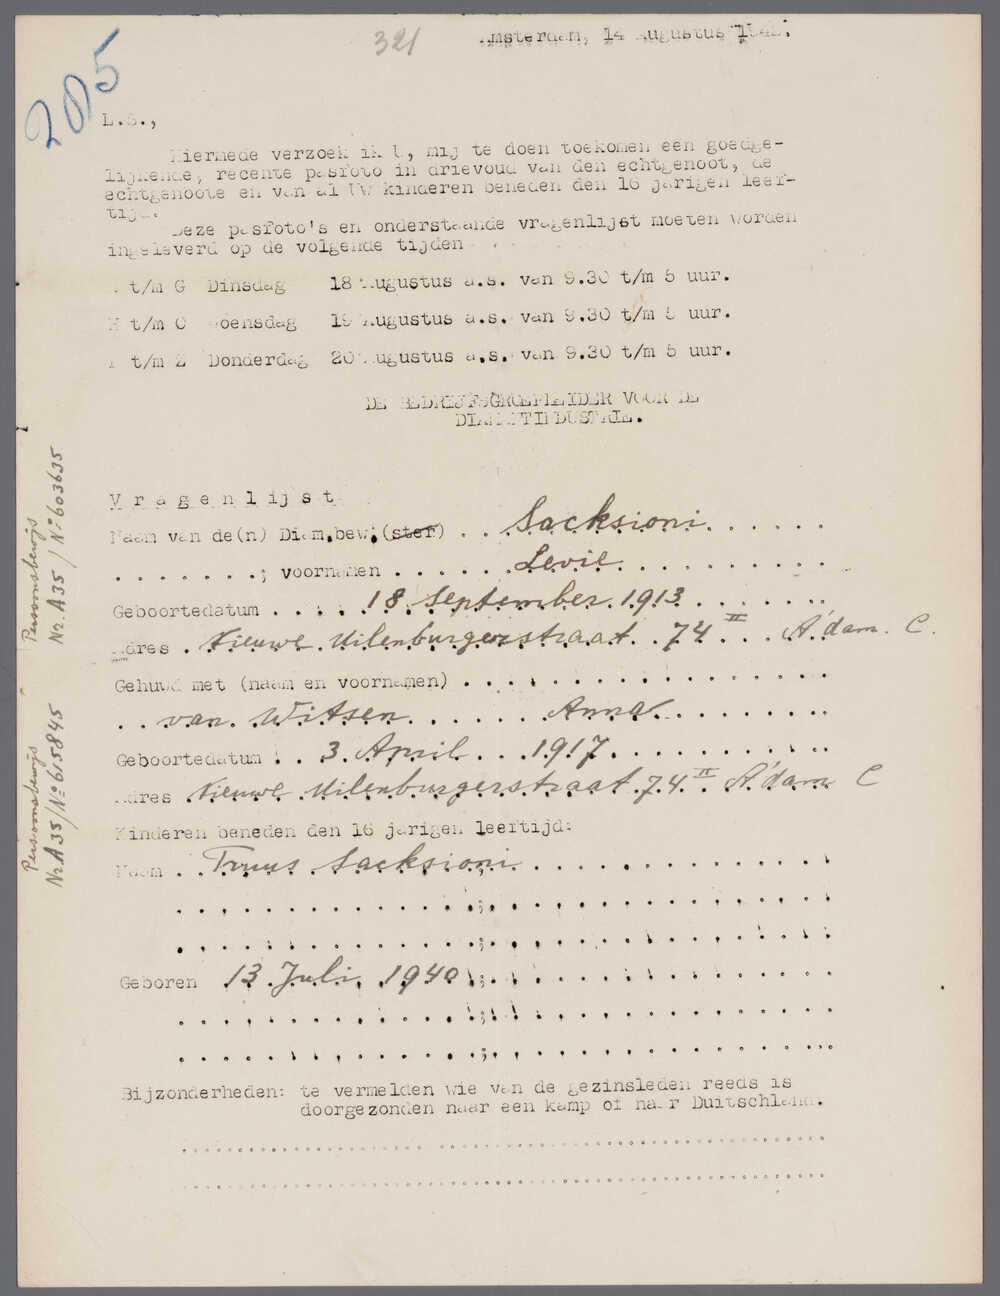 321
Amsterdam, 14 Augustus 1942.
205
L.S.,
Hiermede verzoek ik U, mij te doen toekomen een goedge-
lijkende, recente pasfoto in drievoud van den echtgenoot, de
echtgenoote en van al Uw kinderen beneden den 16 jarigen leef-
tijd.
Deze pasfoto's en onderstaande vragenlijst moeten worden
ingeleverd op de volgende tijden
t/m G Dinsdag 18 Augustus a.s. van 9.30 t/m 5 uur.
H t/m O Woensdag 19 Augustus a.s. van 9.30 t/m 5 uur.
P t/m Z Donderdag 20 Augustus a.s. van 9.30 t/m 5 uur.
DE BEDRIJFSGROEPLEIDER VOOR DE
DIAMANTINDUSTRIE.
Vragenlijst
Naam van de(n) Diam.bew.(ster) . . Sacksioni . . . . . .
. . . . . . . ; voornamen . . . . . . Levie . . . . . . . . . .
Geboortedatum . . . . . 18 September 1913 . . . . . . .
Adres . Nieuwe Uilenburgerstraat . 74 II . . A'dam. C.
Gehuwd met (naam en voornamen) . . . . . . . . . . . . . . . . .
. . van Witsen . . . . . . Anna . . . . . . . . .
Geboortedatum . . 3 April . . 1917 . . . . . . . . . . .
Adres Nieuwe Uilenburgerstraat 74 II A'dam C
Kinderen beneden den 16 jarigen leeftijd:
Naam . . Truus Sacksioni . . . . . . . . . . . . . .
Geboren 13 Juli 1940 . . . . . . . . . . . . . . .
Bijzonderheden: te vermelden wie van de gezinsleden reeds is
doorgezonden naar een kamp of naar Duitschland.
Persoonsbewijs
Nr. A35 / No 603635
Persoonsbewijs
Nr. A35 / No 615845